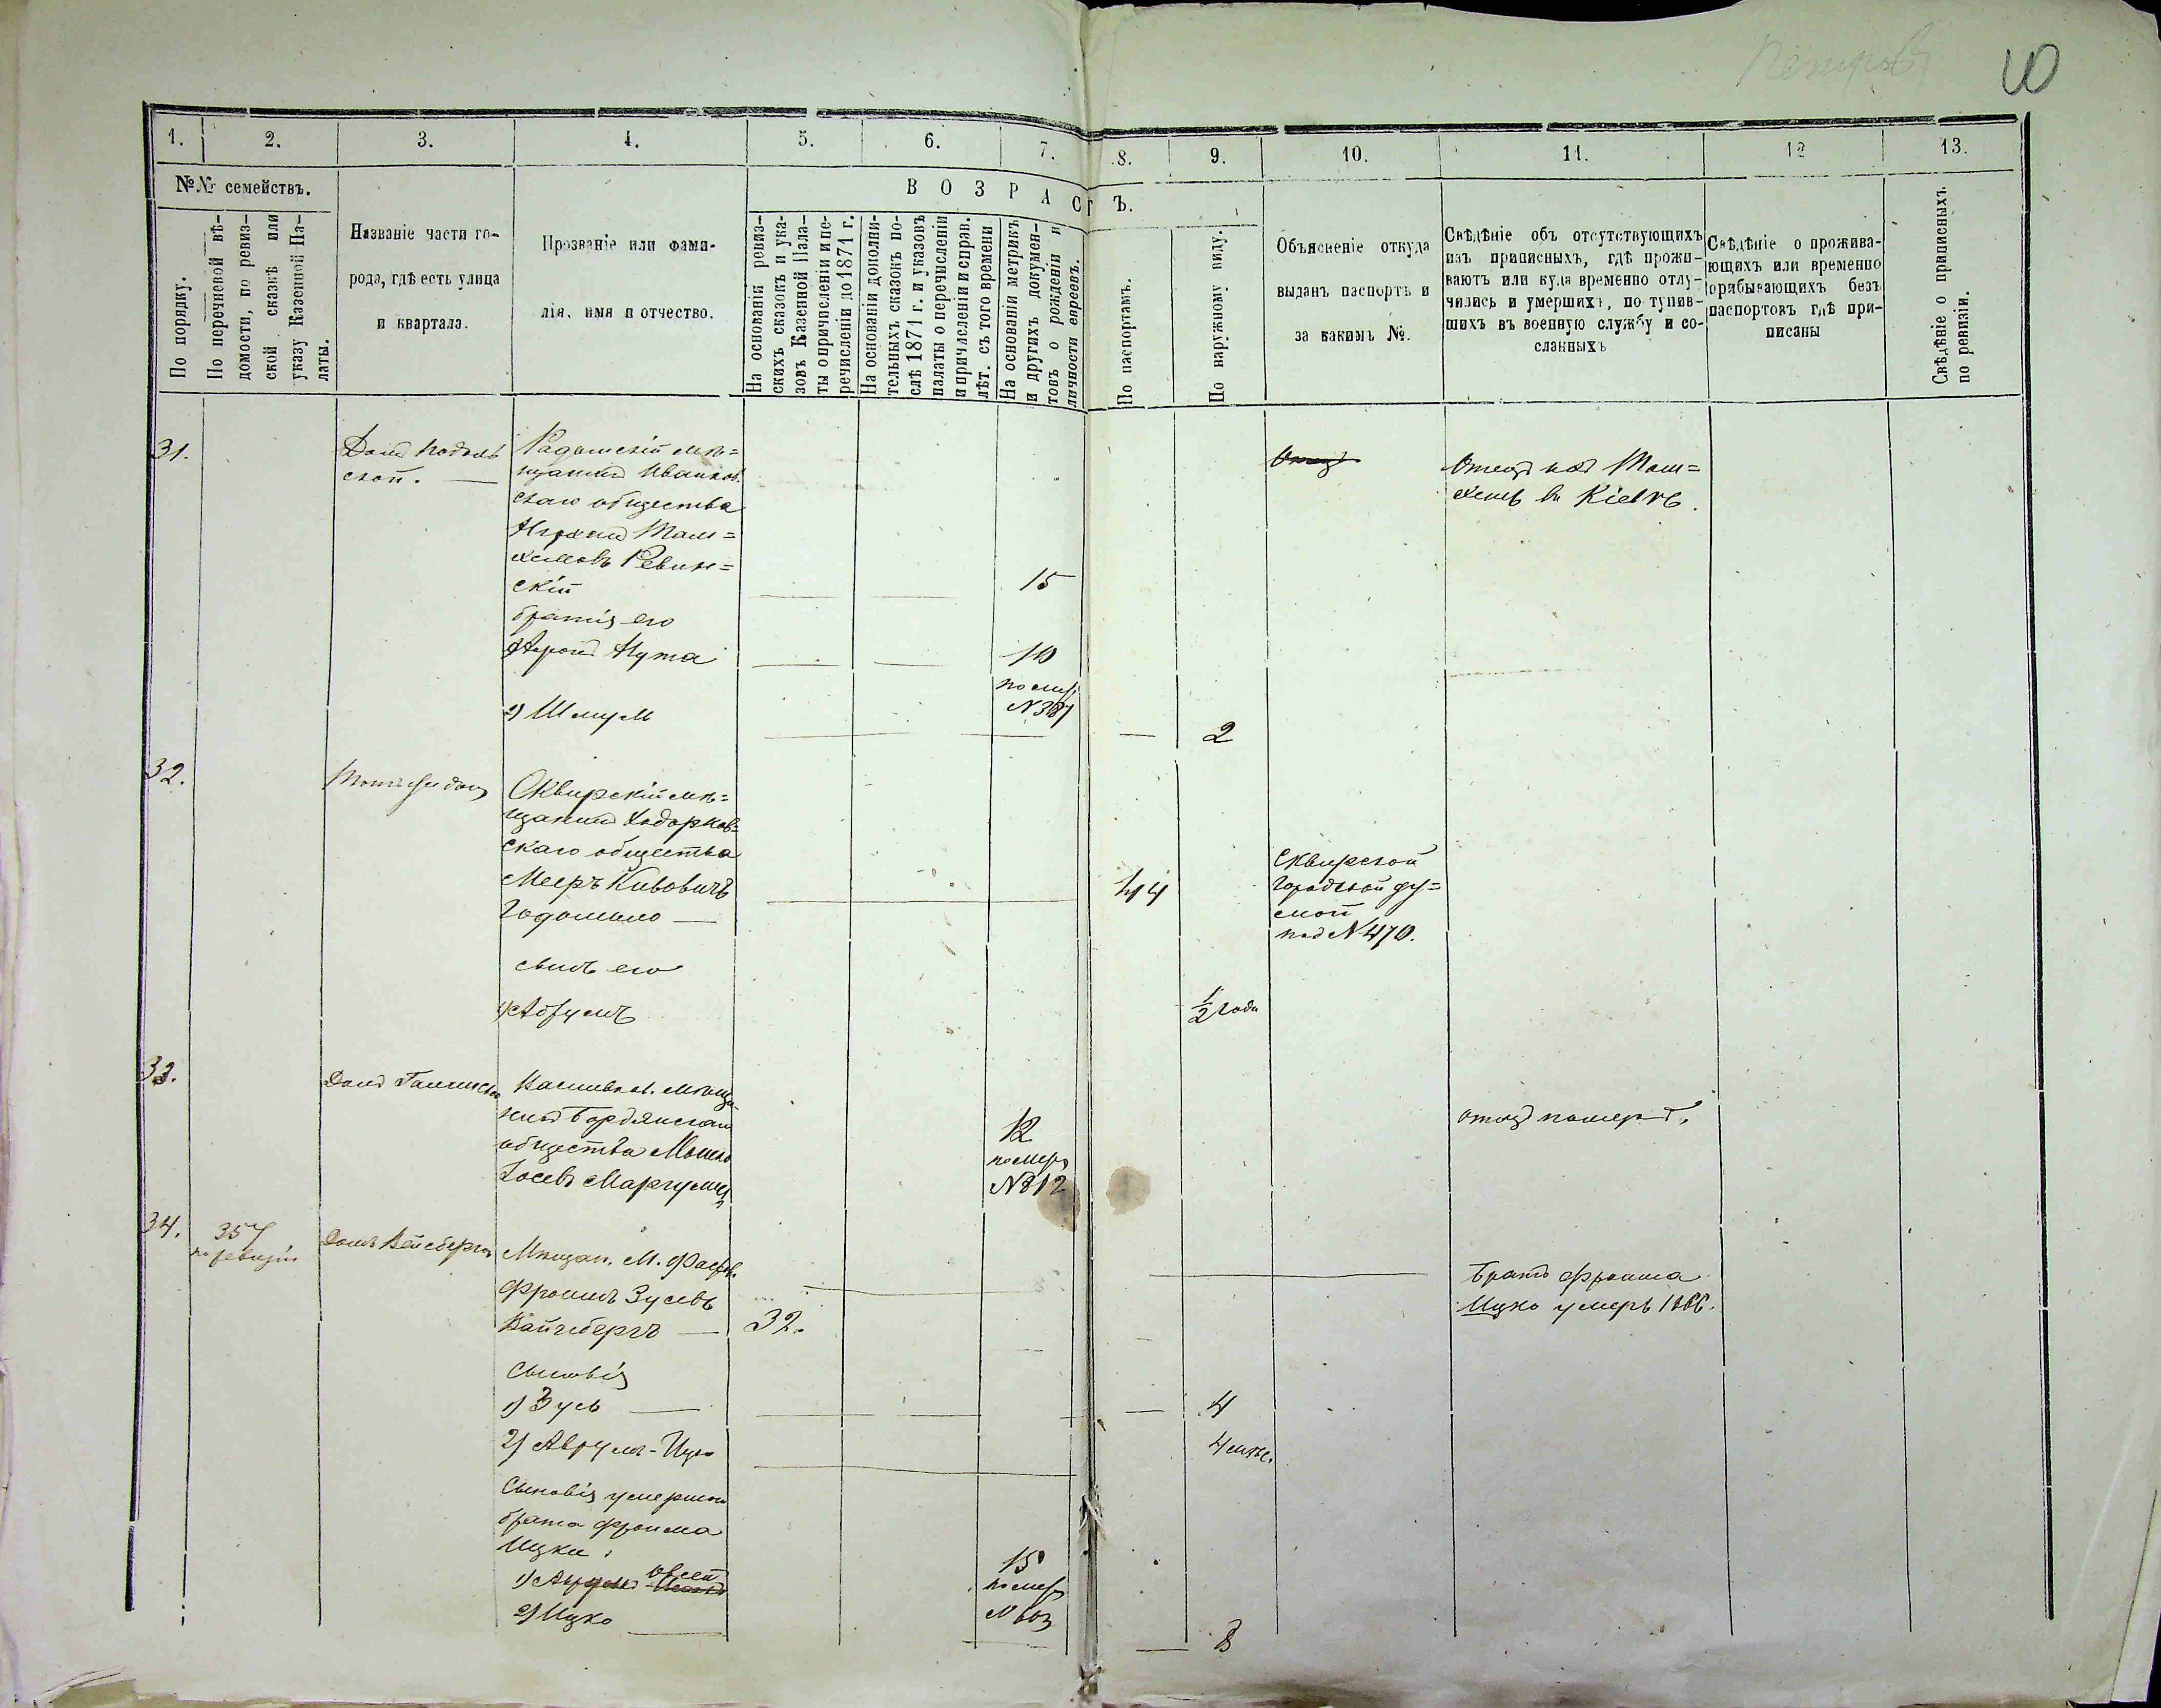 10
1.
2.
3.
4.
5.
6.
7.
8.
9.
10.
11.
12
13.
№№ семействъ.
ВОЗРАСТЪ.
По порядку.
По перечневой вѣ-
домости, по ревиз-
ской сказкѣ или
указу Казенной Па-
латы.
Названіе части го-
рода, гдѣ есть улица
и квартала.
Прозваніе или фами-
лія, имя и отчество.
На основаніи ревиз-
скихъ сказокъ и ука-
зовъ Казенной Пала-
ты о причисленіи и пе-
речисленіи до 1871 г.
На основаніи дополни-
тельныхъ сказокъ по-
слѣ 1871 г. и указовъ
палаты о перечисленіи
и причисленіи и справ.
лѣт. съ того времени
На основаніи метрикъ
и другихъ докумен-
товъ о рожденіи и
личности евреевъ.
По паспортамъ.
По наружному виду.
Объясненіе откуда
выданъ паспортъ и
за какимъ №.
Свѣдѣніе объ отсутствующихъ
изъ приписныхъ, гдѣ прожи-
ваютъ или куда временно отлу-
чились и умершихъ, поступив-
шихъ въ военную службу и со-
сланныхъ
Свѣдѣніе о прожива-
ющихъ или временно
прибывающихъ безъ
паспортовъ гдѣ при-
писаны
Свѣдѣніе о приписныхъ
по ревизіи.
31.
Домъ Подоль
ской.
мѣ=
щанинъ Иванков
скаго общества
Ревин=
скій
15
Отецъ
въ Кіевѣ.
братія его
Аронъ Нута
10
2) Шмуль
по мет.
N 387
2
32.
домъ
Сквирскій мѣ=
щанинъ Ходорков=
скаго общества
Мееръ Кивовичъ
44
Сквирской
городской ду=
мой
под N 470.
сынъ его
1) Абрумъ
1/2 года
33.
Домъ
мѣща
нинъ
общества Мошко
Іосевъ Маргулиц
12
по метр
N 812
отецъ померъ.
34.
357
по ревизіи
Домъ Вейсберга
Мѣщан. м. Фаст.
Фроимъ Зусевъ
Вайсбергъ
32.
Братъ Фроима
Ицко умеръ 1866.
Сыновія
1) Зусь
4
2) Аврумъ-Ицко
4 мѣс.
Сыновія умершаго
брата Фроима
Ицки:
1) Овсей
15
по мет
N 603
2) Ицко
8